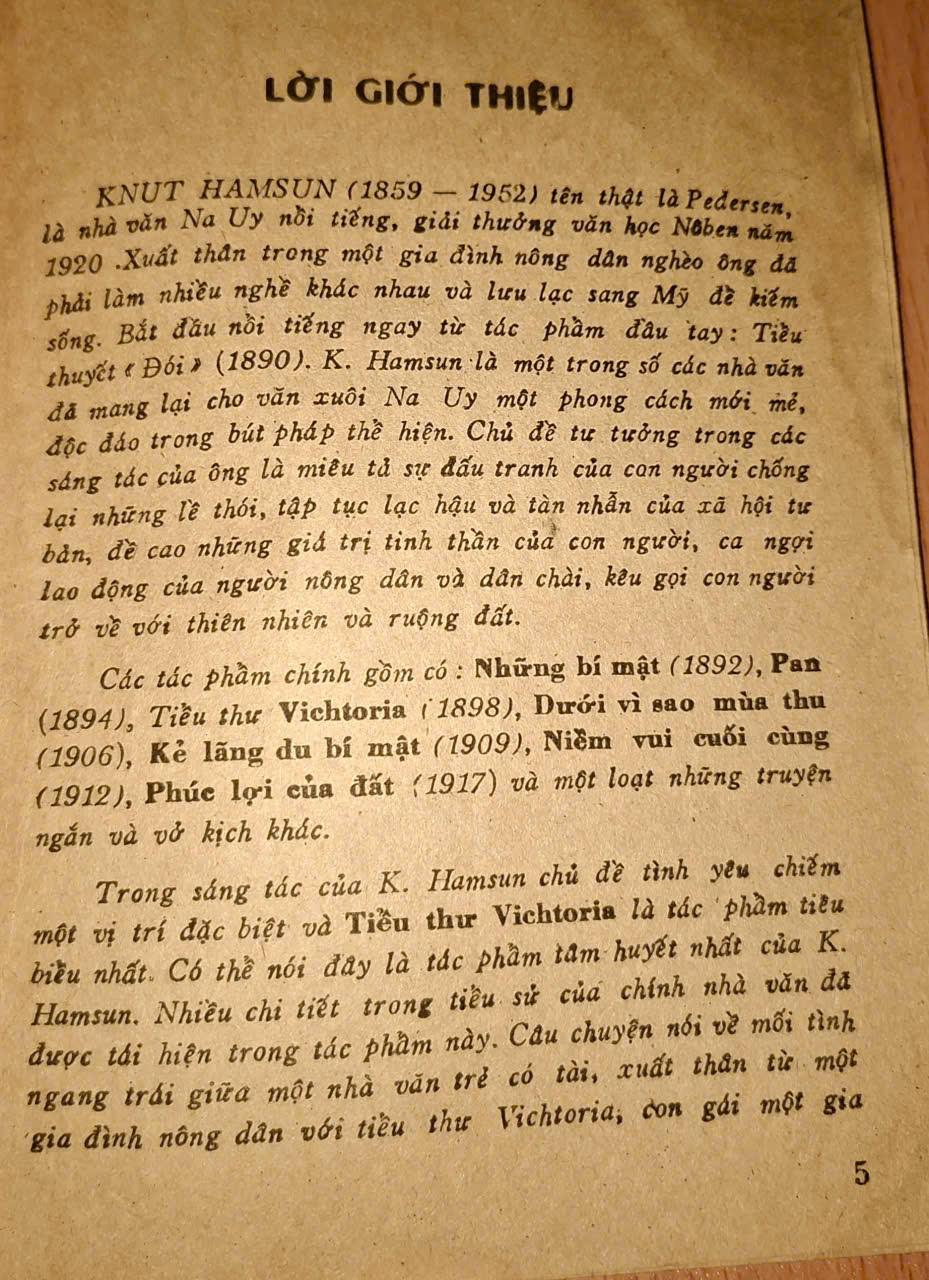 LỜI GIỚI THIỆU
KNUT HAMSUN (1859 — 1952) tên thật là Pedersen,
là nhà văn Na Uy nổi tiếng, giải thưởng văn học Nôben năm
1920 .Xuất thân trong một gia đình nông dân nghèo ông đã
phải làm nhiều nghề khác nhau và lưu lạc sang Mỹ để kiếm
sống. Bắt đầu nổi tiếng ngay từ tác phẩm đầu tay : Tiểu
thuyết « Đói » (1890). K. Hamsun là một trong số các nhà văn
đã mang lại cho văn xuôi Na Uy một phong cách mới mẻ,
độc đáo trong bút pháp thể hiện. Chủ đề tư tưởng trong các
sáng tác của ông là miêu tả sự đấu tranh của con người chống
lại những lề thói, tập tục lạc hậu và tàn nhẫn của xã hội tư
bản, đề cao những giá trị tinh thần của con người, ca ngợi
lao động của người nông dân và dân chài, kêu gọi con người
trở về với thiên nhiên và ruộng đất.
Các tác phẩm chính gồm có : Những bí mật (1892), Pan
(1894), Tiểu thư Vichtoria (1898), Dưới vì sao mùa thu
(1906), Kẻ lãng du bí mật (1909), Niềm vui cuối cùng
(1912), Phúc lợi của đất (1917) và một loạt những truyện
ngắn và vở kịch khác.
Trong sáng tác của K. Hamsun chủ đề tình yêu chiếm
một vị trí đặc biệt và Tiểu thư Vichtoria là tác phẩm tiêu
biểu nhất. Có thể nói đây là tác phẩm tâm huyết nhất của K.
Hamsun. Nhiều chi tiết trong tiểu sử của chính nhà văn đã
được tái hiện trong tác phẩm này. Câu chuyện nói về mối tình
ngang trái giữa một nhà văn trẻ có tài, xuất thân từ một
gia đình nông dân với tiểu thư Vichtoria, con gái một gia
5